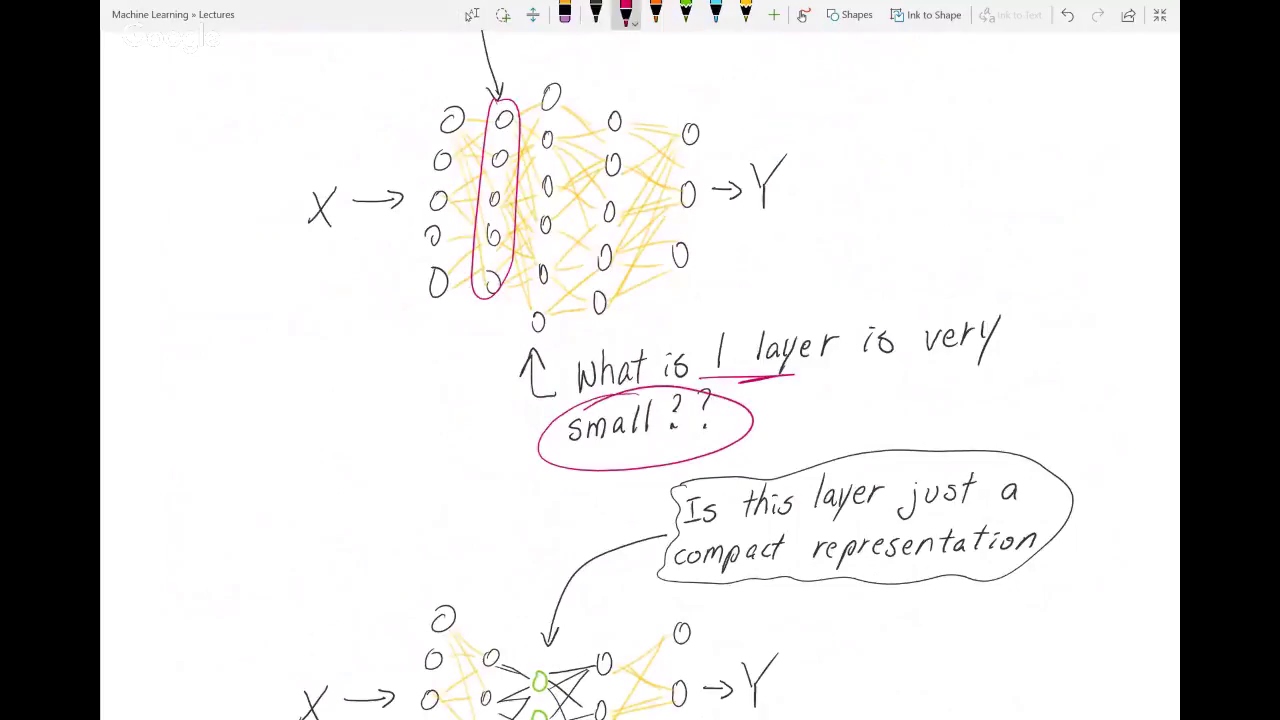 Machine Learning » Lectures
Shapes
Ink to Shape
Ink to Text
Google
X → → Y
What is 1 layer is very
small??
Is this layer just a
compact representation
X → → Y